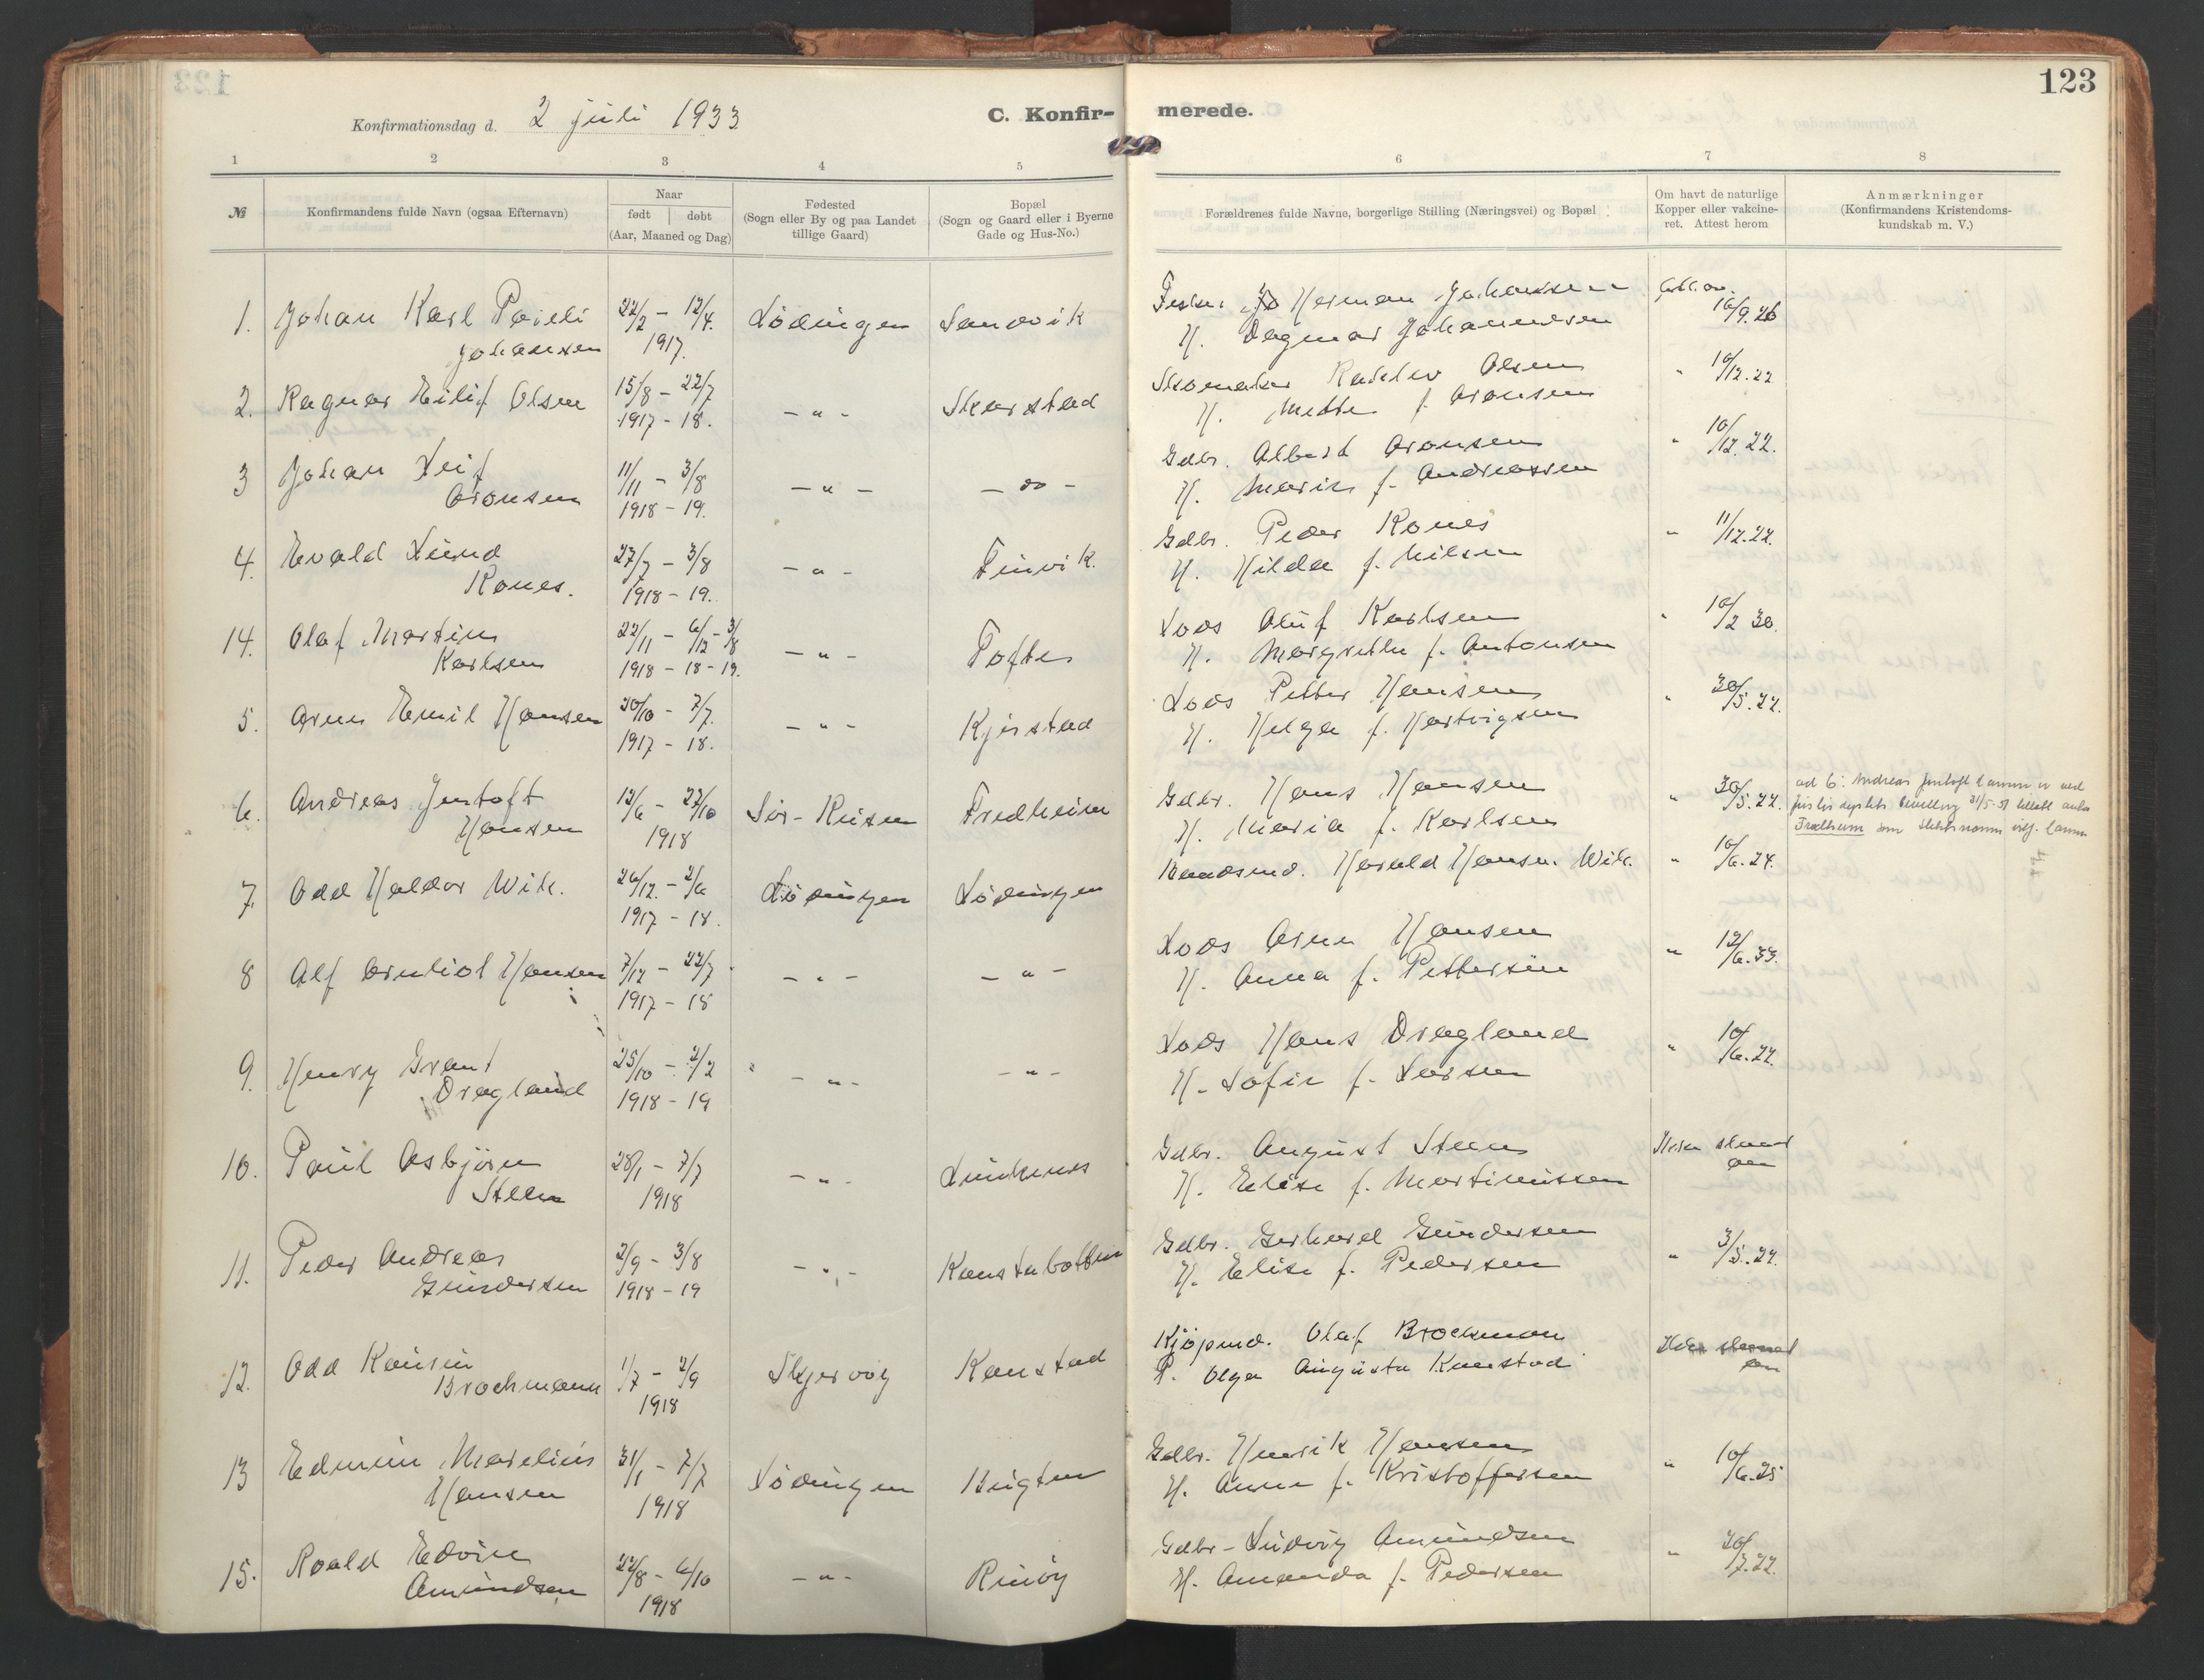 123
Konfirmationsdag d. 2 juli 1933
C. Konfir-
merede.
1 2 3 4 5 6 7 8
№
Konfirmandens fulde Navn (ogsaa Efternavn)
Naar
født | døbt
(Aar, Maaned og Dag)
Fødested
(Sogn eller By og paa Landet
tillige Gaard)
Bopæl
(Sogn og Gaard eller i Byerne
Gade og Hus-No.)
Forældrenes fulde Navne, borgerlige Stilling (Næringsvei) og Bopæl
Om havt de naturlige
Kopper eller vakcine-
ret. Attest herom
Anmærkninger
(Konfirmandens Kristendoms-
kundskab m. V.)
1. Johan Karl 22/2 - 12/4. Lødingen Sandvik Herman Johanssen
Johansen 1917. H. Dagmar Johannesen 16/9.26
2. Ragnar Eilif Olsen 15/8 - 22/7 - " - Skarstad Skomaker Olsen " 10/12.22
1917 - 18. H. Mette f. Aronsen
3 Johan Leif 11/11 - 3/8 - " - Gdbr. Albert Aronsen " 10/12.22.
Aronsen 1918 - 19. H. Marie f. Andreassen
4. Evald Lund 27/7 - 3/8 - " - Finvik. Gdbr. Peder Rones " 11/12.22.
Rones. 1918 - 19. H. Hilda f. Nilsen
14. Olaf Martin 22/11 - 6/12 - 3/8 - " - Tofte Lods Oluf Karlsen " 10/2 30.
Karlsen 1918 - 18 - 19. H. Margrethe f. Antonsen
5. Arne Emil Hansen 20/10 - 7/7. - " - Kjerstad Lods Petter Hansen " 30/5.22.
1917 - 18. H. Helga f. Hartvigsen
6. Andreas Jentoft 12/6 - 27/10 Sør-Reisen Fredheim Gdbr. Hans Hansen " 30/5.22.
Hansen 1918 H. Maria f. Karlsen
ad 6: Andreas Jentoft Hansen er ved
Fredheim som slektsnavn
7. Odd Haldor Wik. 26/12. - 2/6 Lødingen Lødingen Harald Hansen Wik. " 10/6.24.
1917 - 18.
8 Alf Hansen 7/12 - 22/7 - " - - " - Lods Arne Hansen " 12/6.33.
1917 - 18 H. Anna f. Pettersen
9. Henry Grant 25/10 - 2/2 - " - - " - Lods Hans Dragland " 10/6.22.
Dragland 1918 - 19 H. Sofie f. Larsen
10. Paul Asbjørn 28/1 - 7/7 - " - Gdbr. August Steen
Steen 1918 H. Elise f. Martinussen
11. Peder Andreas 2/9 - 3/8 - " - Kanstadbotten Gdbr. Gerhard Gundersen " 3/5.22.
Gundersen 1918 - 19 H. Elise f. Pedersen
12. Odd 1/7 - 2/9 Skjervøy Kanstad Kjøpmd. Olaf Brochmann
Brochmann 1918 Olga Augusta Kanstad
13 Edmun Marelius 31/1 - 7/7 Lødingen Gdbr. Henrik Hansen " 10/6.25
Hansen 1918 H. Anne f. Kristoffersen
15. Roald Edvin 22/8 - 6/10 - " - Rinøy Gdbr - Ludvig Amundsen " 20/7.22.
Amundsen 1918 H. Amanda f. Pedersen